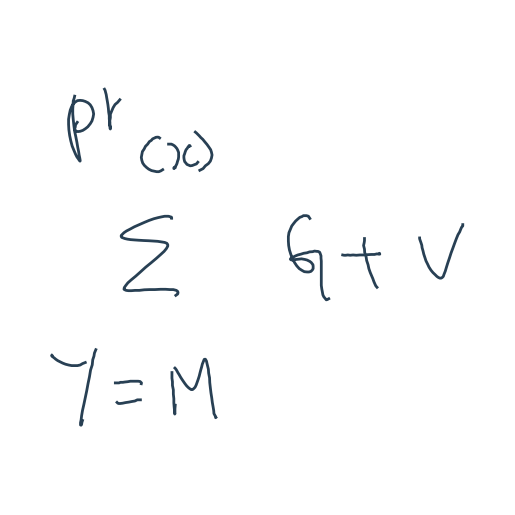 pr
(x)
Σ G + V
Y = M